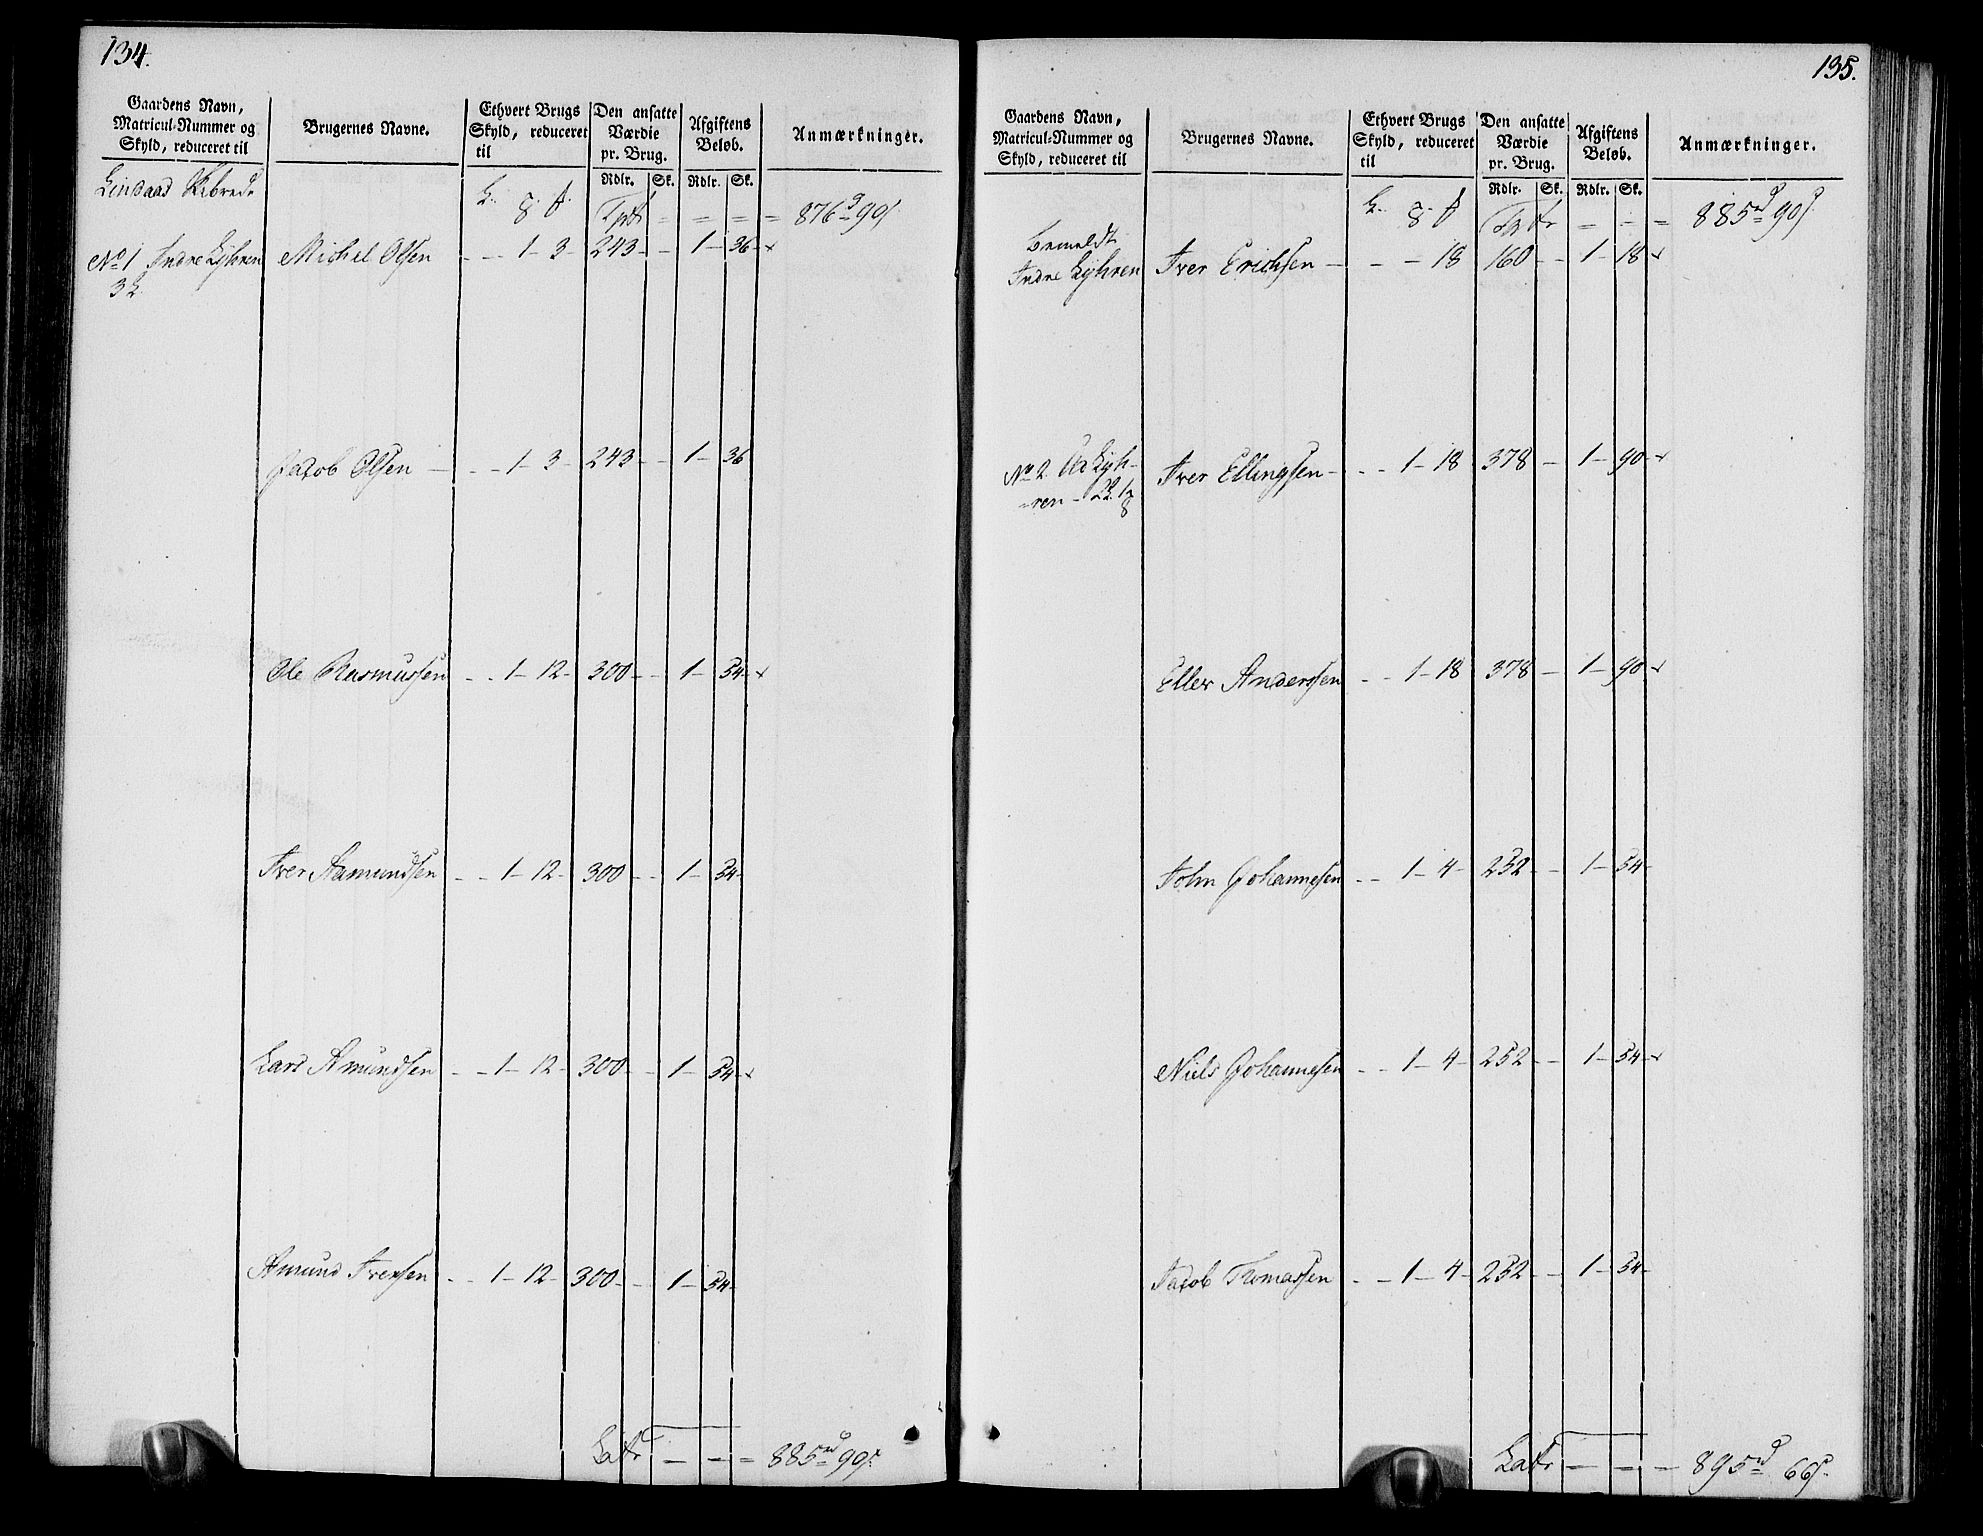 134.
Gaardens Navn, Matricul-Nummer og Skyld, reduceret til
Brugernes Navne.
Ethvert Brugs Skyld, reduceret til
Den ansatte Værdie pr. Brug.
Afgiftens Beløb.
Anmærkninger.
Rdlr. Sk. Rdlr. Sk.
Lindaas Skibrede
L. 8. f. Tpt = = = = 876 90 s.
No 1 Indre Kyhren Michel Olsen - - 1 - 3 - 243 - - 1 - 36 - x
3 L
Jacob Olsen - - - 1 - 3 - 243 - - 1 - 36
Ole Rasmussen - - 1 - 12 - 300 - - 1 - 54 - x
Iver Aamundsen - - 1 - 12 - 300 - - 1 - 54 -
Lars Amundsen - - 1 - 12 - 300 - - 1 - 54 - x
Amund Iversen - - 1 - 12 - 300 - - 1 - 54 -
Latr - - = 885 rd 90 s.
135.
Gaardens Navn, Matricul-Nummer og Skyld, reduceret til
Brugernes Navne.
Ethvert Brugs Skyld, reduceret til
Den ansatte Værdie pr. Brug.
Afgiftens Beløb.
Anmærkninger.
Rdlr. Sk. Rdlr. Sk.
L. 8. f = = = 885 rd 90 s.
bemeldt
Indre Kyhren Iver Erichsen - - - 18 160 - - 1 - 18 - x
No 2 Kyh-
ren - 2 L. 1/8 Iver Ellingsen - - - 1 - 18 378 - 1 - 90 - x
Eller Anderssen - - 1 - 18 378 - 1 - 90 - x
John Johannesen - - 1 - 4 - 252 - - 1 - 54 -
Niels Johannesen - - 1 - 4 - 252 - - 1 - 54 - x
Jacob Thomassen - - 1 - 4 - 252 - - 1 - 54 -
Latr - - - 895 rd 66 s.